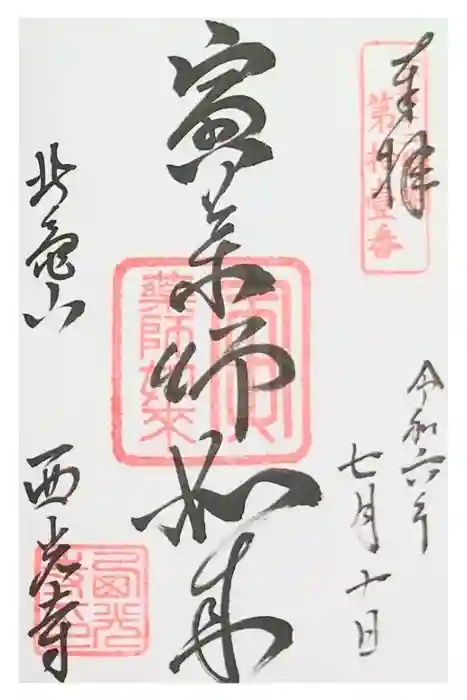 奉拝
第拾壹番
令和六年
七月十日
寅薬師如来
藥師如來
北亀山 西光寺